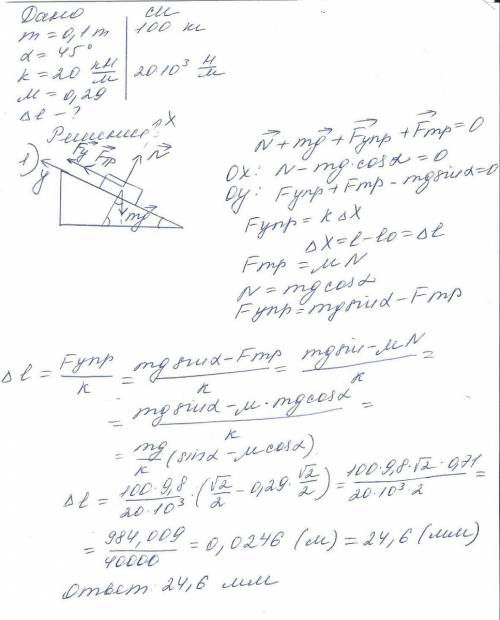 Дано
СИ
m = 0,1 т
100 кг
α = 45°
k = 20 кН/м
20·10³ Н/м
м = 0,29
Δl - ?
Решение:
1)
y
Fy
Fтр
N
X
mg
N + mg + Fупр + Fтр = 0
Ox: N - mg·cosα = 0
Oy: Fупр + Fтр - mgsinα = 0
Fупр = kΔX
ΔX = l - lo = Δl
Fтр = мN
N = mgcosα
Fупр = mgsinα - Fтр
Δl = Fупр/k = (mgsinα - Fтр)/k = (mgsin - мN)/k =
= (mgsinα - м·mgcosα)/k =
= mg/k (sinα - мcosα)
Δl = 100·9,8/20·10³ · (√2/2 - 0,29·√2/2) = 100·9,8·√2·0,71/20·10³·2 =
= 984,009/40000 = 0,0246 (м) = 24,6 (мм)
Ответ 24,6 мм